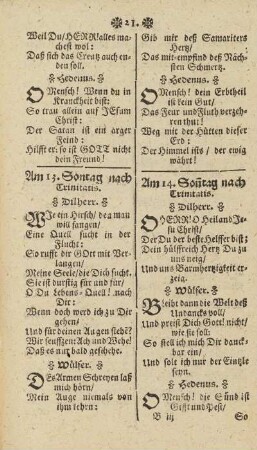 21.
Weil Du/HERR alles ma-
chest wol:
Daß sich das Creutz auch en-
den soll.
Hedenus.
O Mensch! Wenn du in
Kranckheit bist:
So trau allein auf JEsum
Christ:
Der Satan ist ein arger
Feind:
Hilfft er: so ist GOTT nicht
dein Freund!
Am 13. Sontag nach
Trinitatis.
Dilherr.
WJe ein Hirsch/ den man
will fangen/
Eine Quell sucht in der
Flucht:
So rufft dir GOtt mit Ver-
langen/
Meine Seele/ die Dich sucht.
Sie ist durstig für und für/
O Du Lebens-Quell! nach
Dir:
Wenn doch werd ich zu Dir
gehen/
Und für deinen Augen stehn?
Wir seufftzen: Ach und Wehe!
Daß es nur bald geschehe.
Wülfer.
DEs Armen Schreyen laß
mich hörn/
Mein Aug niemals von
ihm kehrn:
Gib mir deß Samariters
Hertz/
Das mit-empfind deß Näch-
sten Schmertz.
Hedenus.
O Mensch! dein Erbtheil
ist kein Gut/
Das Feur und Fluth verzeh-
ren thu!
Weg mit der Hütten dieser
Erd:
Der Himmel ists/ der ewig
währt!
Am 14. Soñtag nach
Trinitatis.
Dilherr.
O HERR O Heiland JE-
su Christ/
Der Du der beste Helffer bist;
Dein hülffreich Hertz Du zu
uns neig/
Und uns Barmhertzigkeit er-
zeig.
Wülfer.
Bleibt dann die Welt deß
Undancks voll/
Und preist Dich GOtt! nicht/
wie sie soll:
So stell ich mich Dir danck-
bar ein/
Und solt ich nur der Eintzle
seyn.
Hedenus.
O Mensch! die Sünd ist
Gifft und Pest/
B iij So